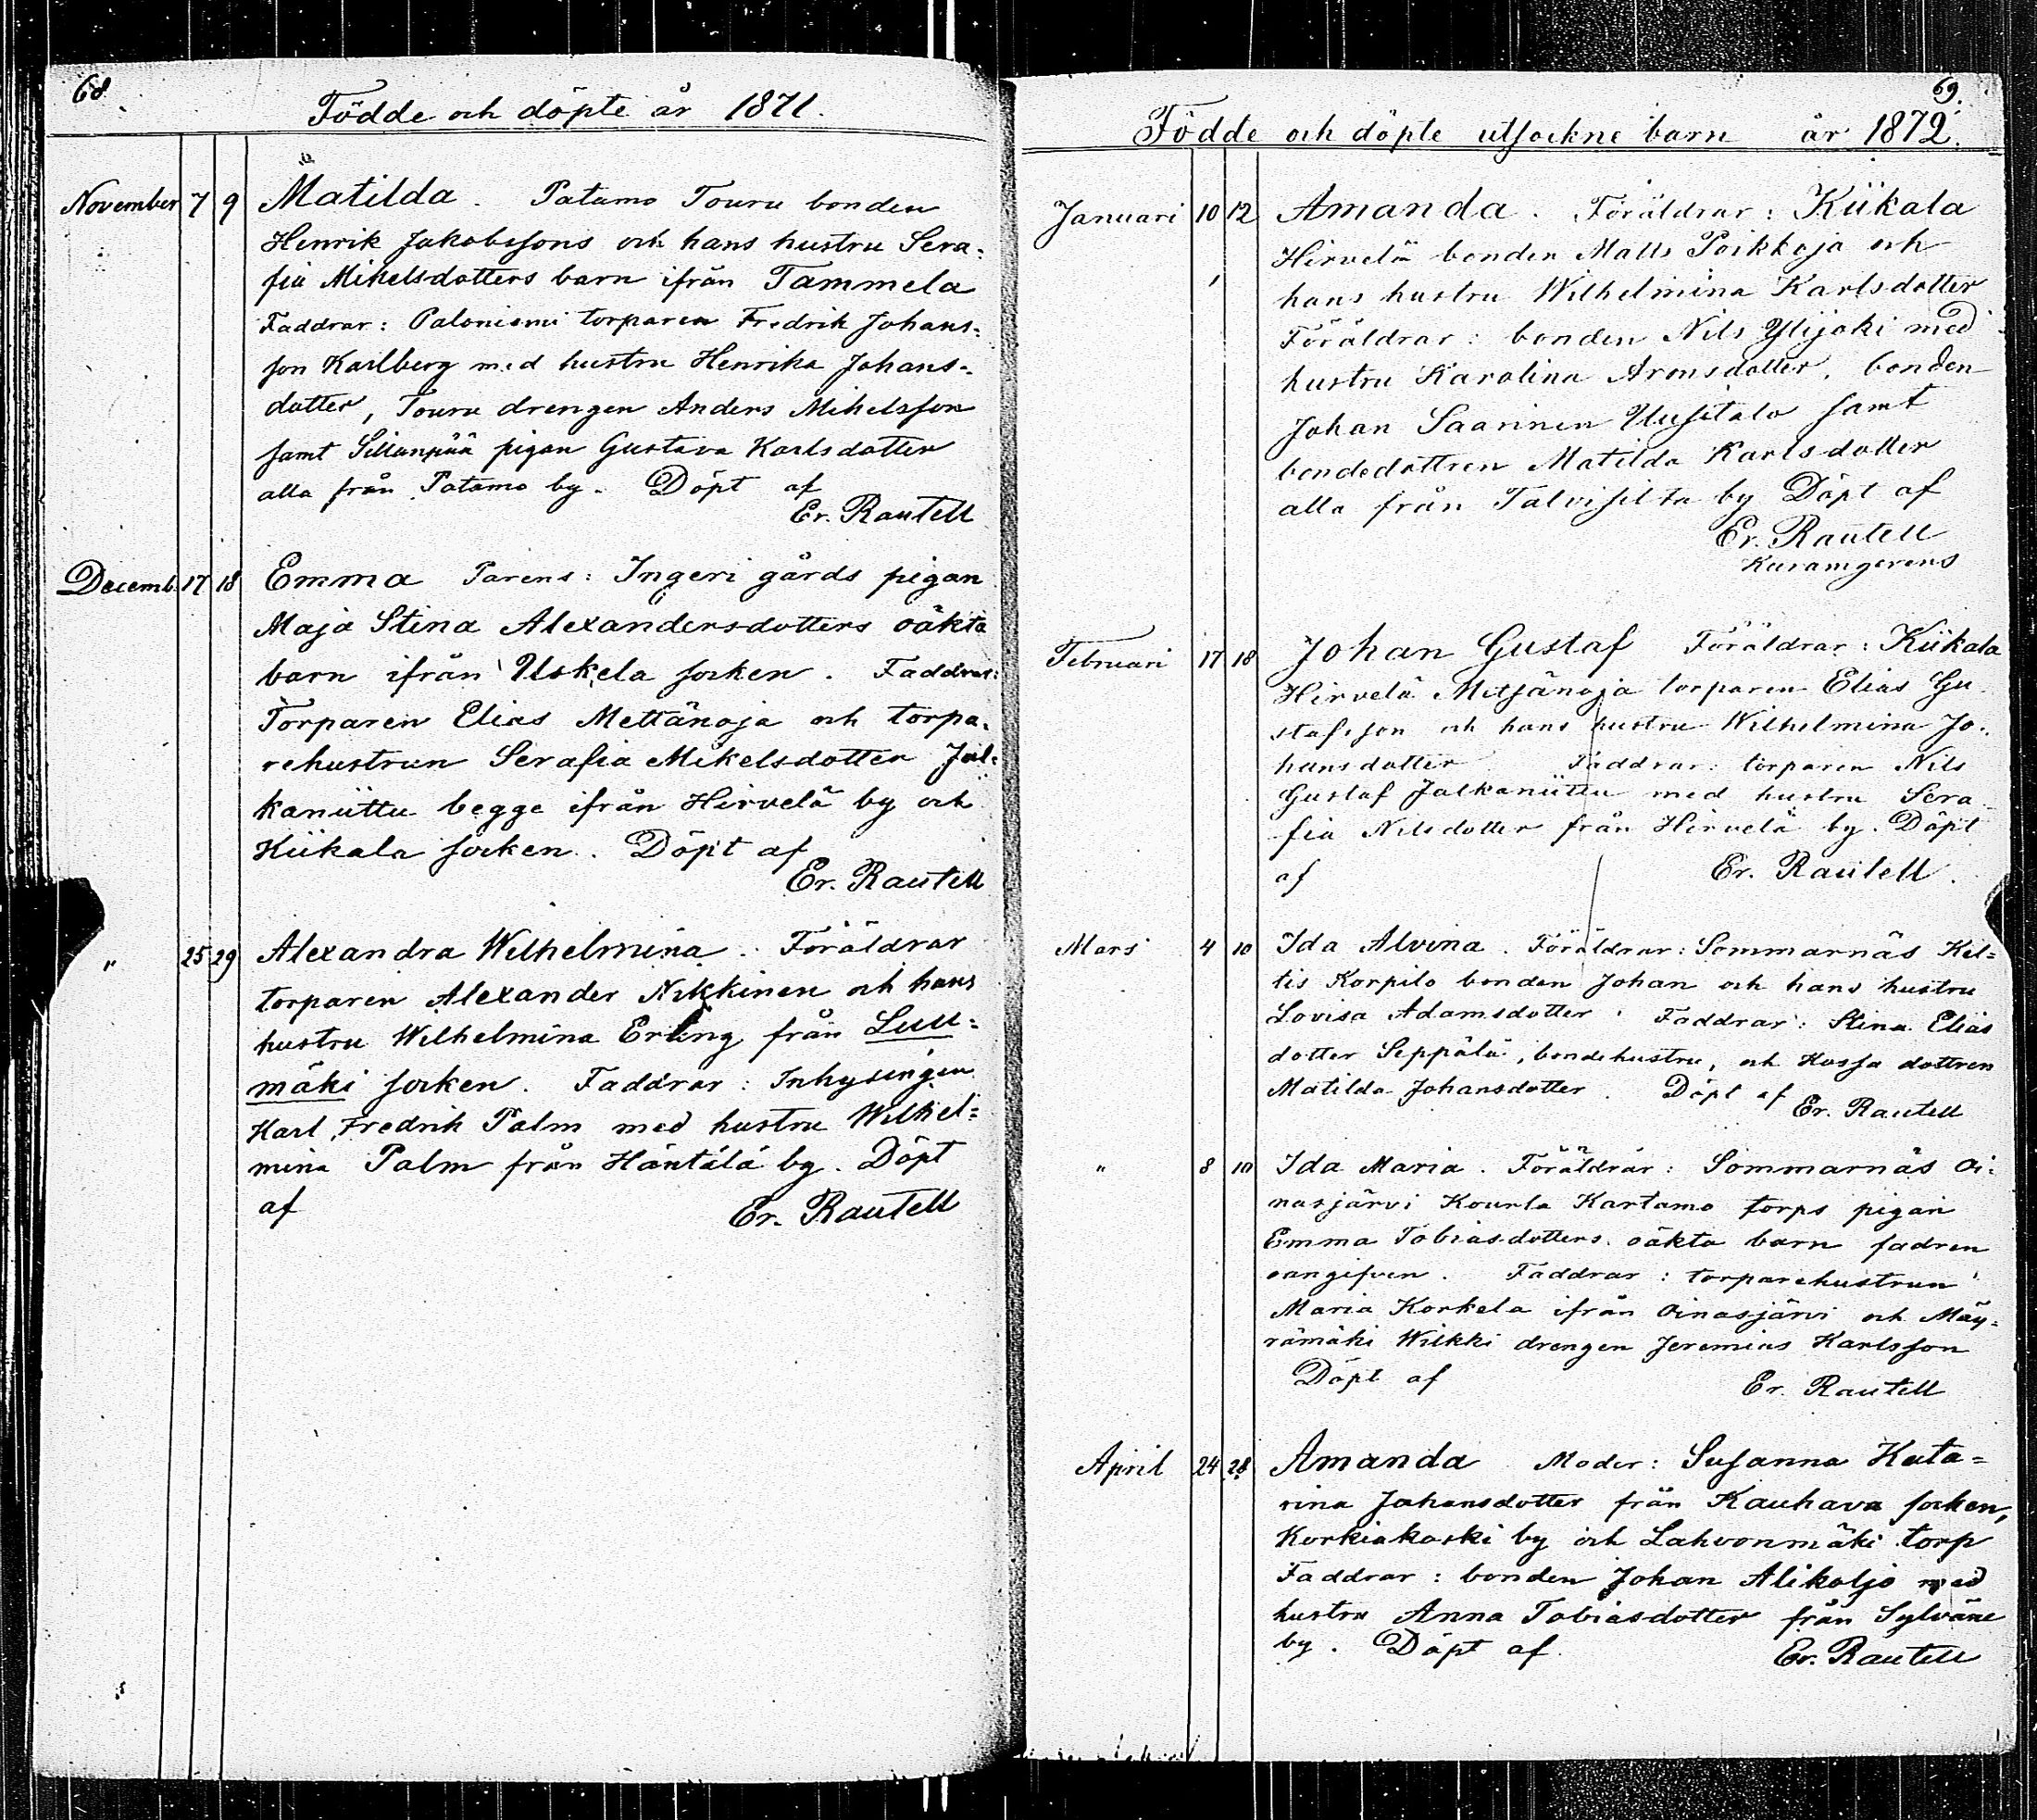 68
Födde och döpte år 1871.
November 7 9 Matilda. Patamo Touru bonden
Henrik Jakobssons och hans hustru Sera-
fia Mikelsdotters barn ifrån Tammela
Faddrar: Paloniemi torparen Fredrik Johans-
son Karlberg med hustru Henrika Johans-
dotter, Touru drengen Anders Mihelsson
samt Sillanpää pigan Gustava Karlsdotter
alla från Patamo by. Döpt af
Er. Rautell
Decemb. 17 18 Emma Parens: Ingeri gårds pigan
Maja Stina Alexandersdotters oäkta
barn ifrån Uskela socken. Faddrar:
Torparen Elias Mettänoja och torpa-
rehustrun Serafia Mikelsdotter Jal-
kaniittu begge ifrån Hirvelä by och
Kiikala socken. Döpt af
Er. Rautell
" 25 29 Alexandra Wilhelmina. Föräldrar
torparen Alexander Nikkinen och hans
hustru Wilhelmina Erling från Luu-
mäki socken. Faddrar: Inhysingen
Karl Fredrik Palm med hustru Wilhel-
mina Palm från Häntälä by. Döpt
af
Er. Rautell
69.
Födde och döpte utsockne barn år 1872.
Januari 10 12 Amanda. Föräldrar: Kiikala
Hirvelä bonden Matts Poikkoja och
hans hustru Wilhelmina Karlsdotter
Föräldrar: bonden Nils Ylijoki med
hustru Karolina Aronsdotter, bonden
Johan Saarinen Uusitalo samt
bondedottren Matilda Karlsdotter
alla från Talvisilta by Döpt af
Er. Rautell
Februari 17 18 Johan Gustaf Föräldrar: Kiikala
Hirvelä Metsänoja torparen Elias Gu-
stafsson och hans hustru Wilhelmina Jo-
hansdotter Faddrar: torparen Nils
Gustaf Jalkaniittu med hustru Sera-
fia Nilsdotter från Hirvelä by. Döpt
af
Er. Rautell.
Mars 4 10 Ida Alvina. Föräldrar: Sommarnäs Kil-
tis Korpilo bonden Johan och hans hustru
Lovisa Adamsdotter. Faddrar: Stina Elias
dotter Seppälä, bondehustru, och Hossa dottren
Matilda Johansdotter. Döpt af
Er. Rautell
" 8 10 Ida Maria. Föräldrar: Sommarnäs Oi-
nasjärvi Kourla Kartamo torps pigan
Emma Tobiasdotters oäkta barn fadren
oangifven. Faddrar: torparehustrun
Maria Korkela ifrån Oinasjärvi och Mäy-
rämäki Wilkki drengen Jeremias Karlsson
Döpt af
Er. Rautell
April 24 28 Amanda Moder: Susanna Kata-
rina Johansdotter från Kauhava socken,
Korkiakoski by och Lahvonmäki torp
Faddrar: bonden Johan Alikoljo med
hustru Anna Tobiasdotter från Sylväne
by. Döpt af
Er. Rautell